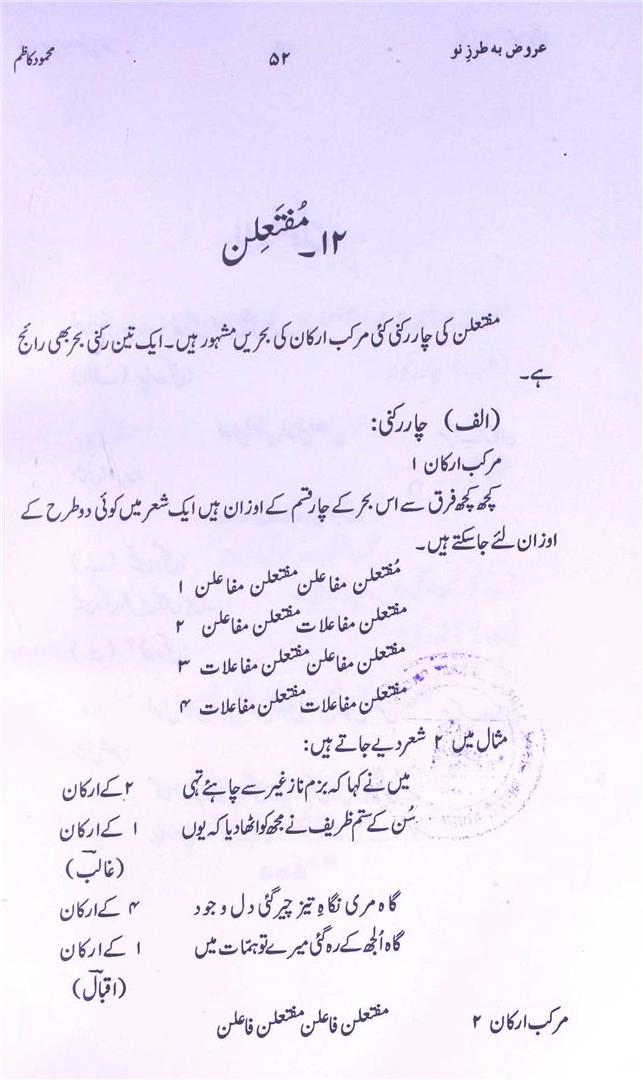 عروض بہ طرزِ نو ۵۲ محمود کاظم
۱۲۔ مُفتَعِلن
مفتعلن کی چار رکنی کئی مرکب ارکان کی بحریں مشہور ہیں۔ ایک تین رکنی بحر بھی رائج
ہے۔
(الف) چار رکنی:
مرکب ارکان ۱
کچھ کچھ فرق سے اس بحر کے چار قسم کے اوزان ہیں ایک شعر میں کوئی دو طرح کے
اوزان لئے جاسکتے ہیں۔
مُفتعلن مفاعلن مفتعلن مفاعلن ۱
مفتعلن مفاعلات مفتعلن مفاعلن ۲
مفتعلن مفاعلن مفتعلن مفاعلات ۳
مفتعلن مفاعلات مفتعلن مفاعلات ۴
مثال میں ۲ شعر دیے جاتے ہیں:
میں نے کہا کہ بزم ناز غیر سے چاہئے تہی ۲ کے ارکان
سُن کے ستم ظریف نے مجھ کو اٹھا دیا کہ یوں ۱ کے ارکان
(غالبؔ)
گاہ مری نگاہِ تیز چیر گئی دل وجود ۴ کے ارکان
گاہ اُلجھ کے رہ گئی میرے توہمّات میں ۱ کے ارکان
(اقبالؔ)
مرکب ارکان ۲ مفتعلن فاعلن مفتعلن فاعلن